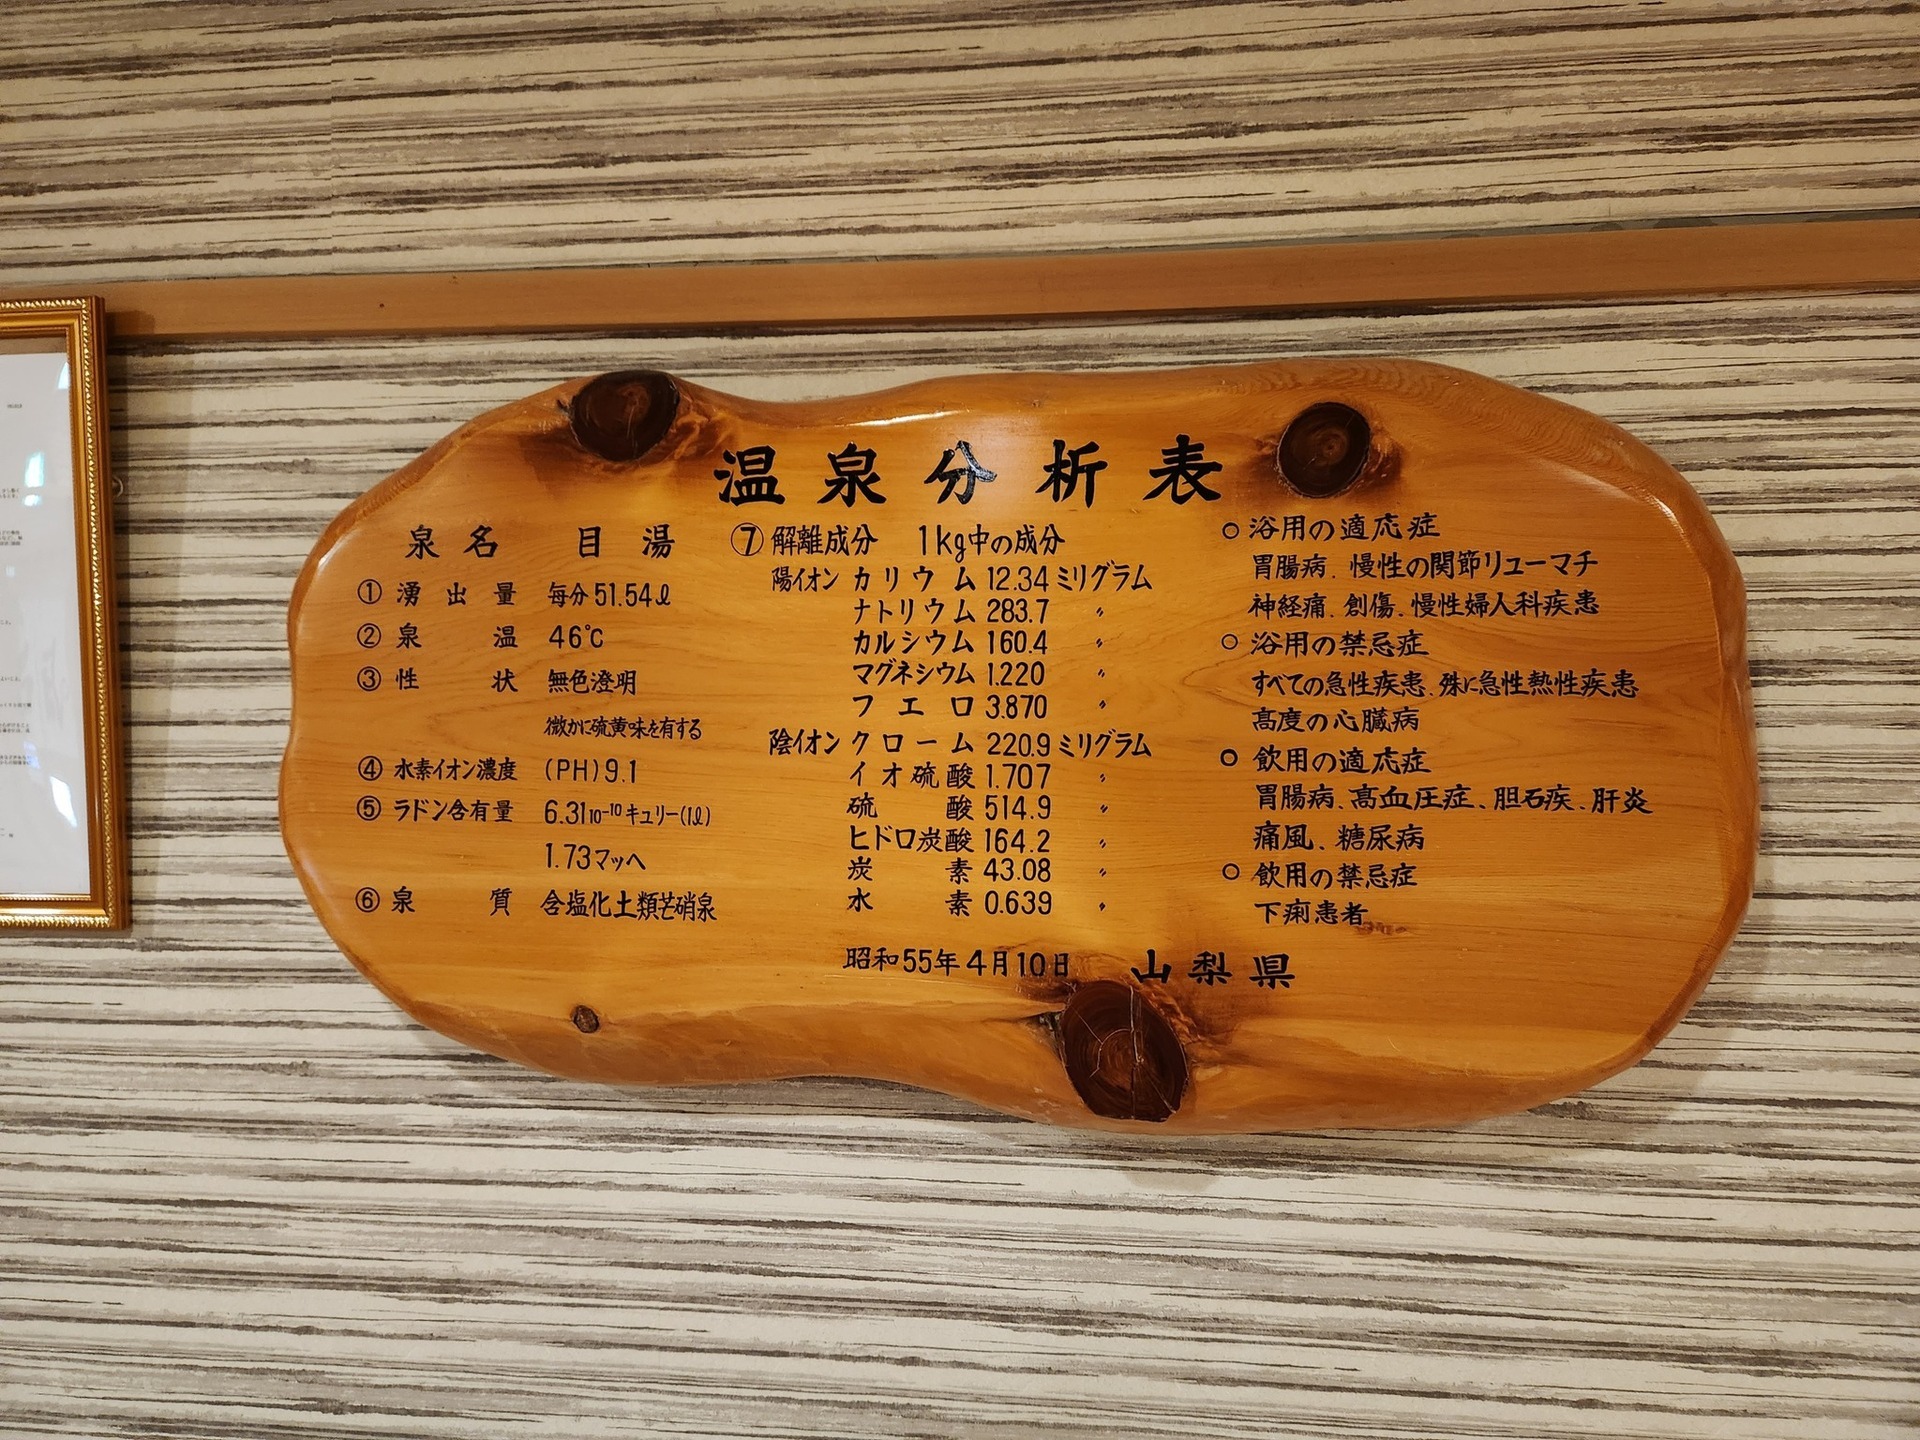 温泉分析表
泉名 目湯
① 湧出量 毎分51.54ℓ
② 泉温 46℃
③ 性状 無色澄明
微かに硫黄味を有する
④ 水素イオン濃度 (PH)9.1
⑤ ラドン含有量 6.31 10⁻¹⁰キュリー(1ℓ)
1.73マッヘ
⑥ 泉質 含塩化土類芒硝泉
⑦ 解離成分 1kg中の成分
陽イオン カリウム 12.34 ミリグラム
ナトリウム 283.7 〃
カルシウム 160.4 〃
マグネシウム 1.220 〃
フエロ 3.870 〃
陰イオン クローム 220.9 ミリグラム
イオ硫酸 1.707 〃
硫酸 514.9 〃
ヒドロ炭酸 164.2 〃
炭素 43.08 〃
水素 0.639 〃
○ 浴用の適応症
胃腸病、慢性の関節リューマチ
神経痛、創傷、慢性婦人科疾患
○ 浴用の禁忌症
すべての急性疾患、殊に急性熱性疾患
高度の心臓病
○ 飲用の適応症
胃腸病、高血圧症、胆石疾、肝炎
痛風、糖尿病
○ 飲用の禁忌症
下痢患者
昭和55年4月10日 山梨県